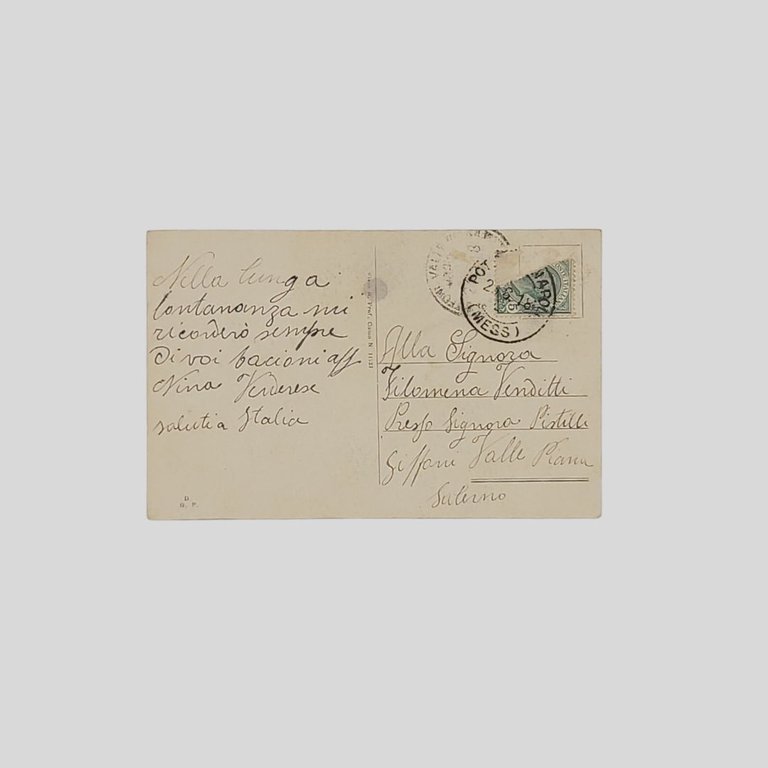 Nella lunga
lontananza mi
ricorderò sempre
di voi bacioni aff
Nina Venderese
saluti a Italia
D
G. P.
Alla Signora
Filomena Venditti
Presso Signora Pistilli
Giffoni Valle Piana
Salerno
NAPOLI
(MESS)